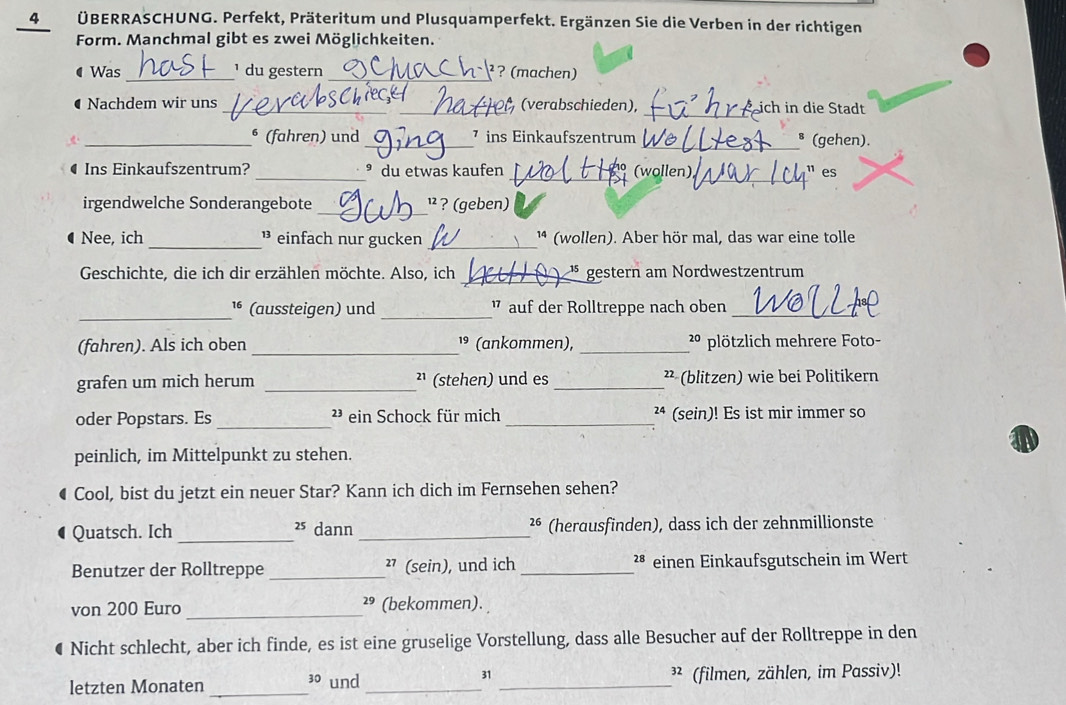 4 ÜBERRASCHUNG. Perfekt, Präteritum und Plusquamperfekt. Ergänzen Sie die Verben in der richtigen
Form. Manchmal gibt es zwei Möglichkeiten.
Was hast ¹ du gestern gemacht ²? (machen)
Nachdem wir uns verabschiedet ³ hatten (verabschieden), führte ich in die Stadt
____ ⁶ (fahren) und ging ⁷ ins Einkaufszentrum Wolltest ⁸ (gehen).
Ins Einkaufszentrum? ____ ⁹ du etwas kaufen ¹⁰ (wollen) ¹¹ es
irgendwelche Sonderangebote gab ¹²? (geben)
Nee, ich ____ ¹³ einfach nur gucken W ¹⁴ (wollen). Aber hör mal, das war eine tolle
Geschichte, die ich dir erzählen möchte. Also, ich ¹⁵ gestern am Nordwestzentrum
____ ¹⁶ (aussteigen) und ____ ¹⁷ auf der Rolltreppe nach oben Wollte ¹⁸
(fahren). Als ich oben ____ ¹⁹ (ankommen), ____ ²⁰ plötzlich mehrere Foto-
grafen um mich herum ____ ²¹ (stehen) und es ____ ²² (blitzen) wie bei Politikern
oder Popstars. Es ____ ²³ ein Schock für mich ____ ²⁴ (sein)! Es ist mir immer so
peinlich, im Mittelpunkt zu stehen.
Cool, bist du jetzt ein neuer Star? Kann ich dich im Fernsehen sehen?
Quatsch. Ich ____ ²⁵ dann ____ ²⁶ (herausfinden), dass ich der zehnmillionste
Benutzer der Rolltreppe ____ ²⁷ (sein), und ich ____ ²⁸ einen Einkaufsgutschein im Wert
von 200 Euro ____ ²⁹ (bekommen).
Nicht schlecht, aber ich finde, es ist eine gruselige Vorstellung, dass alle Besucher auf der Rolltreppe in den
letzten Monaten ____ ³⁰ und ____ ³¹ ____ ³² (filmen, zählen, im Passiv)!